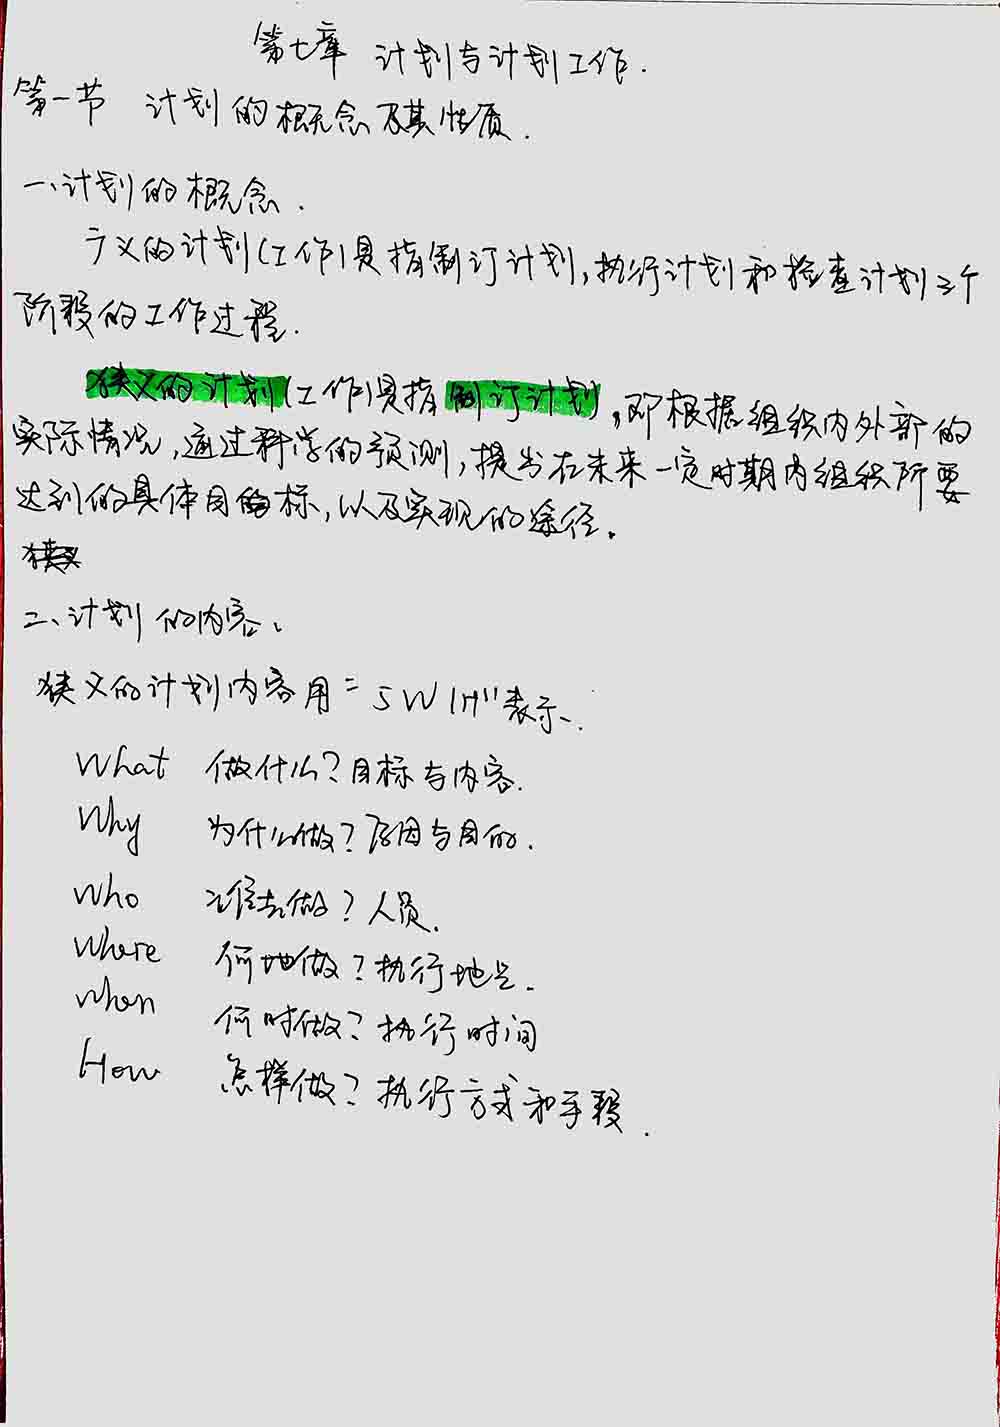 第七章 计划与计划工作.
第一节 计划的概念及其性质.
一、计划的概念.
广义的计划(工作)是指制订计划,执行计划和检查计划三个
阶段的工作过程.
狭义的计划(工作)是指制订计划,即根据组织内外部的
实际情况,通过科学的预测,提出在未来一定时期内组织所要
达到的具体目标,以及实现的途径。
狭义
二、计划的内容、
狭义的计划内容用"5W1H"表示、.
What 做什么?目标与内容.
Why 为什么做?原因与目的.
Who 谁去做?人员.
Where 何地做?执行地点.
When 何时做?执行时间
How 怎样做?执行方式和手段.